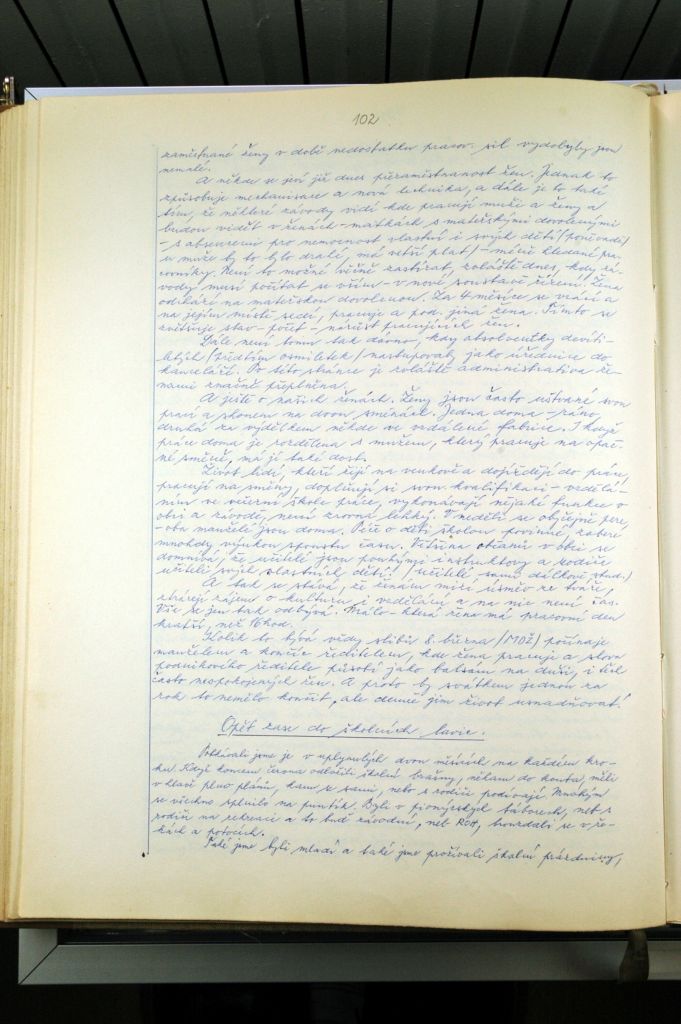 102
zaměstnané ženy v době nedostatku pracov. sil vydobyly jsou
nemalé.
A někde se jeví již dnes přezaměstnanost žen. Jednak to
způsobuje mechanisace a nová technika, a dále je to také
tím, že některé závody vidí kde pracují muži a ženy a
budou vidět v ženách-matkách s mateřskými dovolenými
- s absencemi pro nemocnost vlastní i svých dětí
u muže by to bylo dražší, má větší plat/- méně hledané pra-
covníky. Není to možné věčně zastírat, zvláště dnes, kdy zá-
vody musí počítat se vším - v nové soustavě řízení. Žena
odchází na mateřskou dovolenou. Za 4 měsíce se vrátí a
na jejím místě sedí, pracuje a pod. jiná žena. Tímto se
zvětšuje stav - počet - nárůst pracujících žen.
Dále není tomu tak dávno, kdy absolventky devíti-
letých /předtím osmiletek/ nastupovaly jako úřednice do
kanceláří. Po této stránce je zvláště administrativa že-
nami značně přeplněna.
A ještě o našich ženách. Ženy jsou často uštvané svou
prací a shonem na dvou směnách. Jedna doma - ráno,
druhá za výdělkem někde ve vzdálené fabrice. I když
práce doma je rozdělena s mužem, který pracuje na opač-
né směně, má jí také dost.
Život lidí, kteří žijí na venkově a dojíždějí do práce,
pracují na směny, doplňují si svou kvalifikaci - vzdělá-
ním ve večerní škole práce, vykonávají nějaké funkce v
obci a závodě, není zrovna lehký. V neděli se obyčejně pere,
- oba manželé jsou doma. Péče o děti školou povinné, zabere
mnohdy výukou spoustu času. Většina občanů v obci se
domnívá, že učitelé jsou pouhými instruktory a rodiče
učiteli svých vlastních dětí! /učitelé samí dálkově stud./
A tak se stává, že ženám mizí úsměv ze tváře,
ztrácejí zájem o kulturu i vzdělání a na nic není čas.
Vše se jen tak odbývá. Málo - která žena má pracovní den
kratší, než 16 hod.
Kolik to bývá vždy slibů 8. března /MDŽ/ počínaje
manželem a konče ředitelem, kde žena pracuje a slova
podnikového ředitele působí jako balsám na duši, i těch
často nespokojených žen. A proto by svátkem jednou za
rok to nemělo končit, ale denně jim život usnadňovat!
Opět zase do školních lavic.
Potkávali jsme je v uplynulých dvou měsících na každém kro-
ku. Když koncem června odložili školní brašny, někam do kouta, měli
v hlavě plno plánů, kam se sami, nebo s rodiči podívají. Mnohým
se všechno splnilo na puntík. Byli v pionýrských táborech, neb s
rodiči na rekreaci a to buď závodní, neb ROH, koupali se v ře-
kách a potocích.
Také jsme byli mladí a také jsme prožívali školní prázdniny,